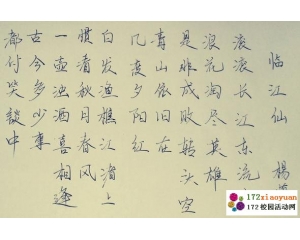 临江仙 杨
滚滚长江东流
浪花淘尽英雄
是非成败转头空
青山依旧在
几度夕阳红
白发渔樵江渚上
惯看秋月春风
一壶浊酒喜相逢
古今多少事
都付笑谈中
172xiaoyuan
.com
172校园活动网